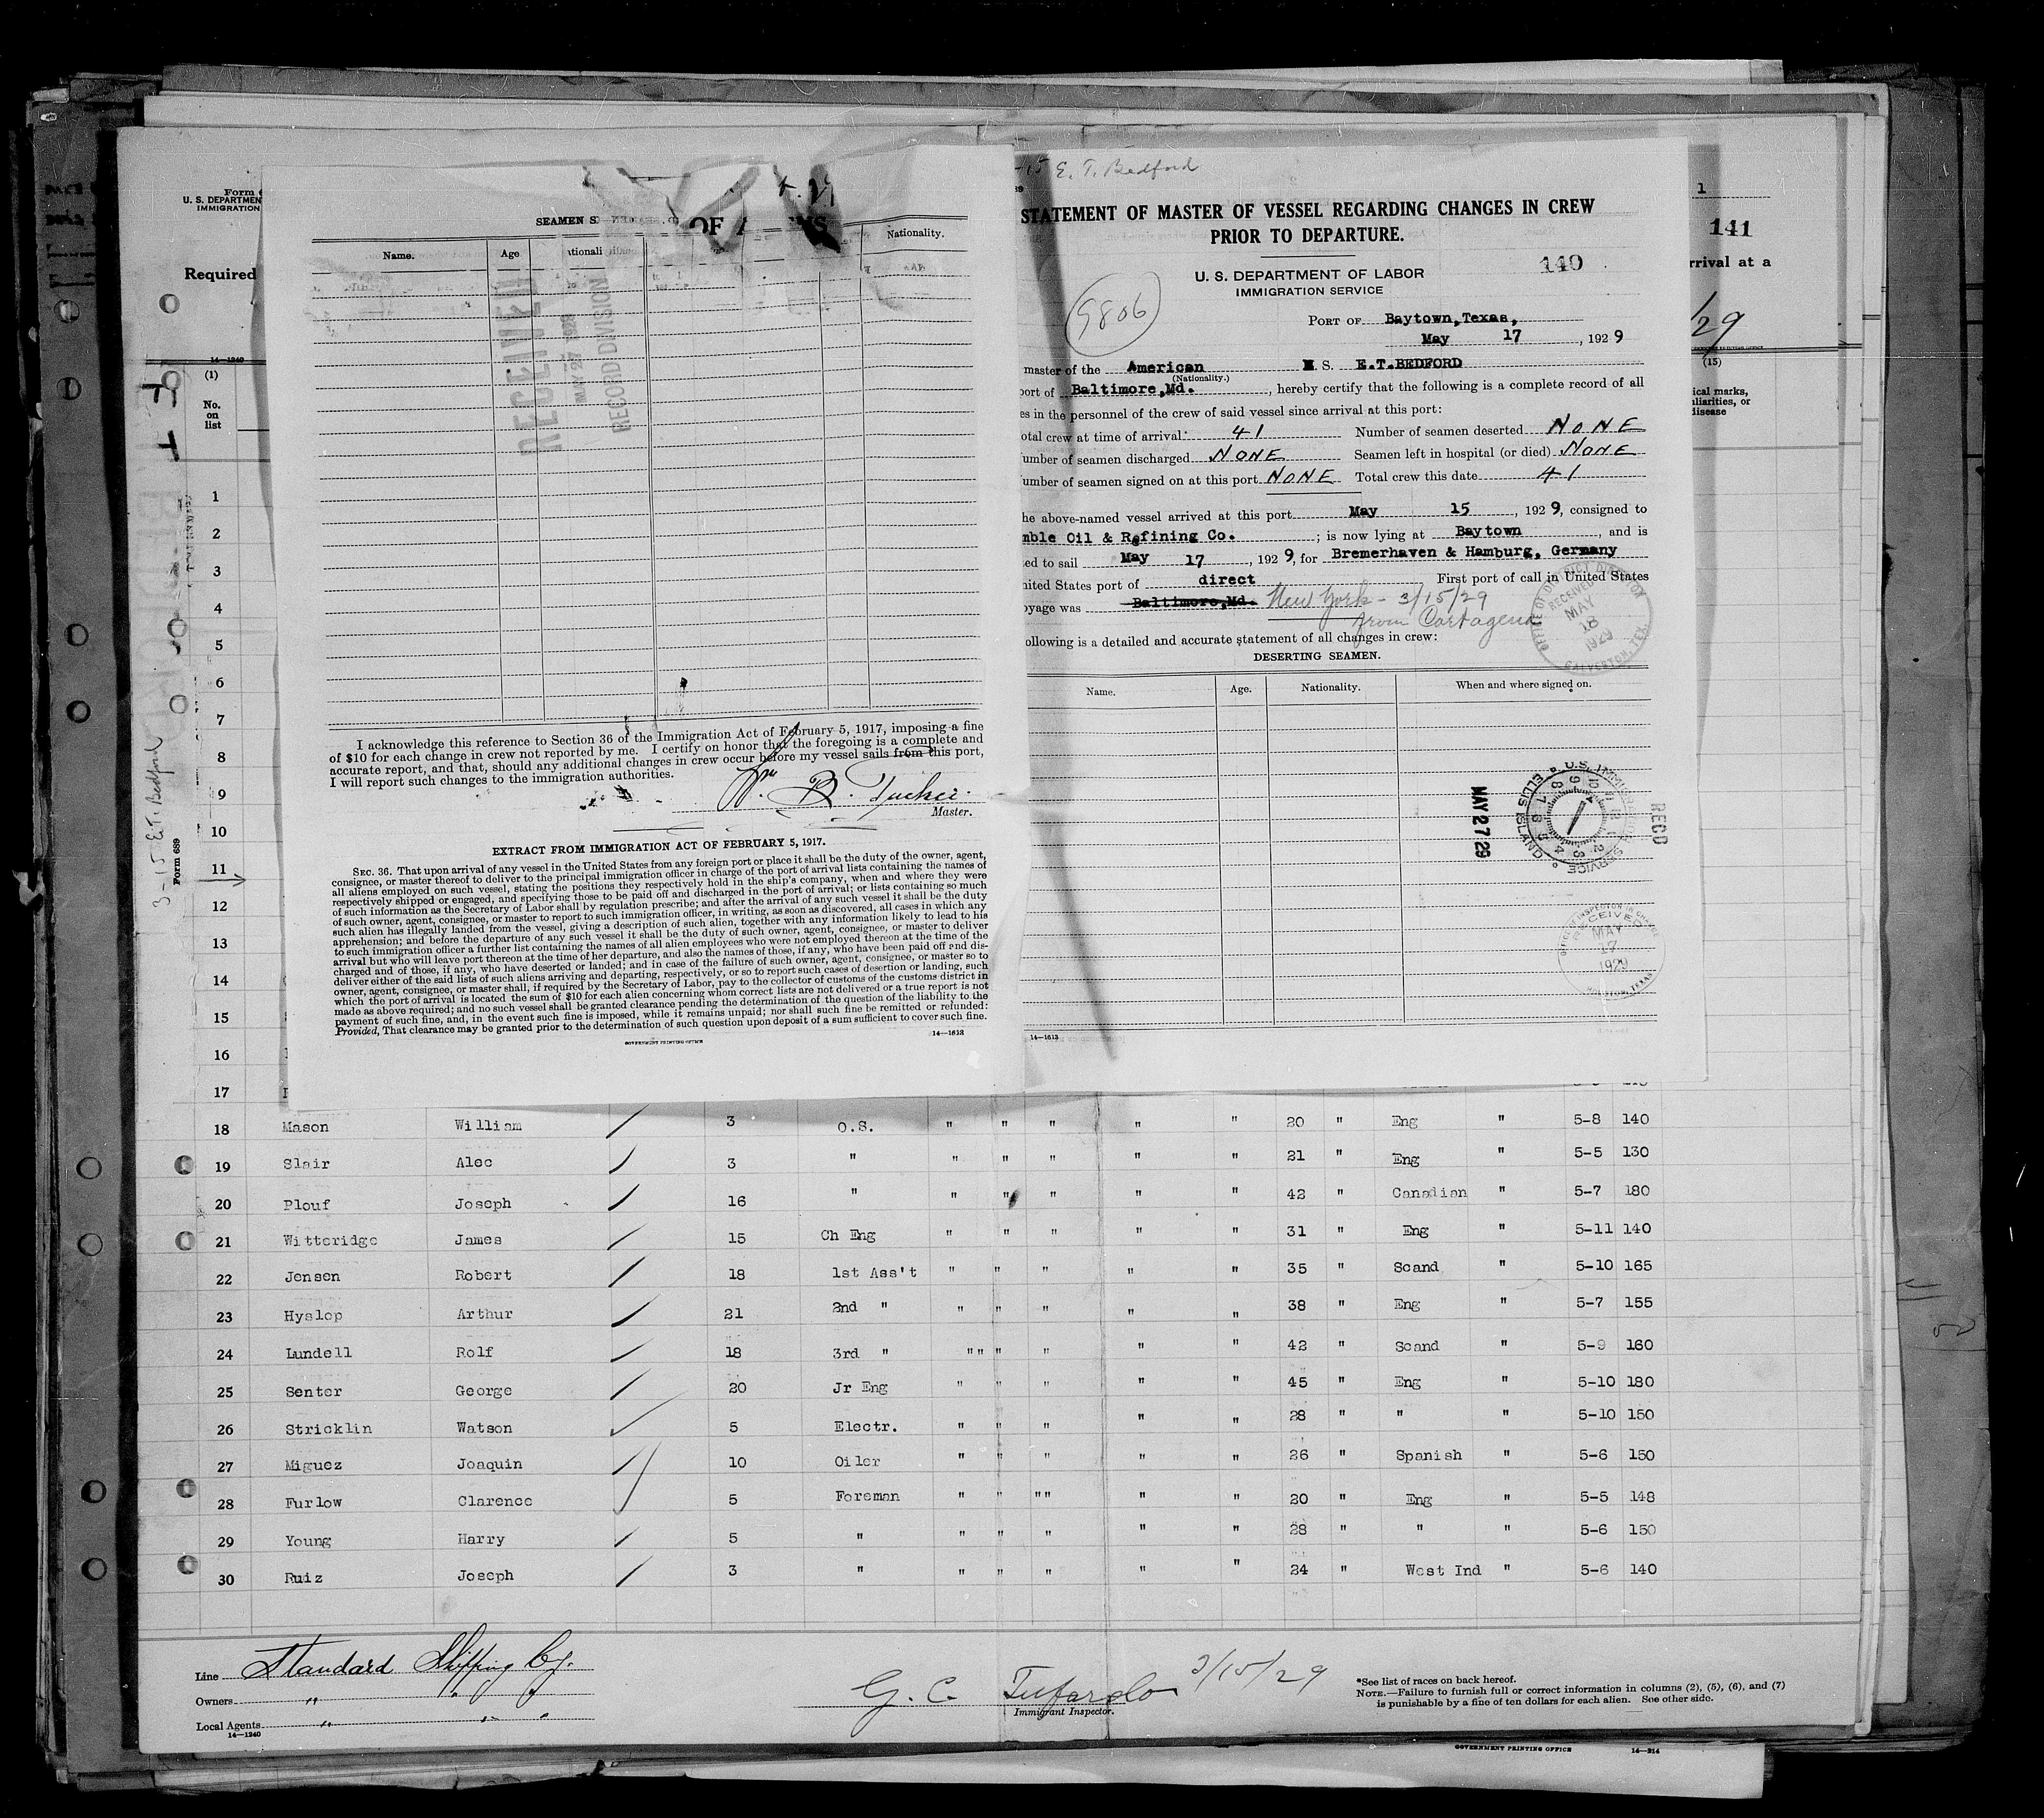 Form
U. S. DEPARTMEN
IMMIGRATION
Required
14—1240
(1)
No.
on
list
1
2
3
4
5
6
7
8
9
10
11
12
13
14
15
16
17
3-15 E.T. Bedford
Form 689
SEAMEN S
OF
Name.
Age
Nationality.
RECEIVED
MAY 27 1929
RECORD DIVISION
I acknowledge this reference to Section 36 of the Immigration Act of February 5, 1917, imposing a fine
of $10 for each change in crew not reported by me. I certify on honor that the foregoing is a complete and
accurate report, and that, should any additional changes in crew occur before my vessel sails from this port,
I will report such changes to the immigration authorities.
B. Tucker.
Master.
EXTRACT FROM IMMIGRATION ACT OF FEBRUARY 5, 1917.
SEC. 36. That upon arrival of any vessel in the United States from any foreign port or place it shall be the duty of the owner, agent,
consignee, or master thereof to deliver to the principal immigration officer in charge of the port of arrival lists containing the names of
all aliens employed on such vessel, stating the positions they respectively hold in the ship's company, when and where they were
respectively shipped or engaged, and specifying those to be paid off and discharged in the port of arrival; or lists containing so much
of such information as the Secretary of Labor shall by regulation prescribe; and after the arrival of any such vessel it shall be the duty
of such owner, agent, consignee, or master to report to such immigration officer, in writing, as soon as discovered, all cases in which any
such alien has illegally landed from the vessel, giving a description of such alien, together with any information likely to lead to his
apprehension; and before the departure of any such vessel it shall be the duty of such owner, agent, consignee, or master to deliver
to such immigration officer a further list containing the names of all alien employees who were not employed thereon at the time of the
arrival but who will leave port thereon at the time of her departure, and also the names of those, if any, who have been paid off and dis-
charged and of those, if any, who have deserted or landed; and in case of the failure of such owner, agent, consignee, or master so to
deliver either of the said lists of such aliens arriving and departing, respectively, or so to report such cases of desertion or landing, such
owner, agent, consignee, or master shall, if required by the Secretary of Labor, pay to the collector of customs of the customs district in
which the port of arrival is located the sum of $10 for each alien concerning whom correct lists are not delivered or a true report is not
made as above required; and no such vessel shall be granted clearance pending the determination of the question of the liability to the
payment of such fine, and, in the event such fine is imposed, while it remains unpaid; nor shall such fine be remitted or refunded:
Provided, That clearance may be granted prior to the determination of such question upon deposit of a sum sufficient to cover such fine.
GOVERNMENT PRINTING OFFICE 14—1613
-15 E. T. Bedford
STATEMENT OF MASTER OF VESSEL REGARDING CHANGES IN CREW
PRIOR TO DEPARTURE.
U. S. DEPARTMENT OF LABOR
IMMIGRATION SERVICE
140
9806
PORT OF Baytown,Texas,
May 17, 1929
master of the American S. E.T.BEDFORD
(Nationality.)
port of Baltimore,Md., hereby certify that the following is a complete record of all
es in the personnel of the crew of said vessel since arrival at this port:
otal crew at time of arrival 41 Number of seamen deserted NONE
umber of seamen discharged NONE Seamen left in hospital (or died) NONE
umber of seamen signed on at this port NONE Total crew this date 41
he above-named vessel arrived at this port May 15, 1929, consigned to
mble Oil & Refining Co.; is now lying at Baytown, and is
ed to sail May 17, 1929, for Bremerhaven & Hamburg, Germany
nited States port of direct First port of call in United States
oyage was Baltimore,Md. New York - 3/15/29
from Cartagena
ollowing is a detailed and accurate statement of all changes in crew:
DESERTING SEAMEN.
Name. Age. Nationality. When and where signed on.
OFFICE OF DISTRICT DIRECTOR
RECEIVED
MAY
18
1929
GALVESTON, TEX.
MAY 27 29
U.S. IMMIGRATION SERVICE
ELLIS ISLAND
RECD
INSPECTOR IN CHARGE
RECEIVED
MAY
17
1929
HOUSTON, TEXAS
14—1613
1
141
rrival at a
/29
(15)
ical marks,
uliarities, or
disease
18 Mason William 3 O.S. " " " " " 20 " Eng " 5-8 140
19 Slair Alec 3 " " " " " " 21 " Eng " 5-5 130
20 Plouf Joseph 16 " " " " " " 42 " Canadian " 5-7 180
21 Witteridge James 15 Ch Eng " " " " " 31 " Eng " 5-11 140
22 Jensen Robert 18 1st Ass't " " " " " 35 " Scand " 5-10 165
23 Hyslop Arthur 21 2nd " " " " " " 38 " Eng " 5-7 155
24 Lundell Rolf 18 3rd " "" " " " " 42 " Scand " 5-9 160
25 Senter George 20 Jr Eng " " " " " 45 " Eng " 5-10 180
26 Stricklin Watson 5 Electr. " " " " " 28 " " " 5-10 150
27 Miguez Joaquin 10 Oiler " " " " " 26 " Spanish " 5-6 150
28 Furlow Clarence 5 Foreman " " "" " " 20 " Eng " 5-5 148
29 Young Harry 5 " " " " " " 28 " " " 5-6 150
30 Ruiz Joseph 3 " " " " " " 24 " West Ind " 5-6 140
Line Standard Shipping Co.
Owners " " "
Local Agents " " "
14—1240
G. C. Tufardo 3/15/29
Immigrant Inspector.
*See list of races on back hereof.
NOTE.—Failure to furnish full or correct information in columns (2), (5), (6), and (7)
is punishable by a fine of ten dollars for each alien. See other side.
GOVERNMENT PRINTING OFFICE 14—214